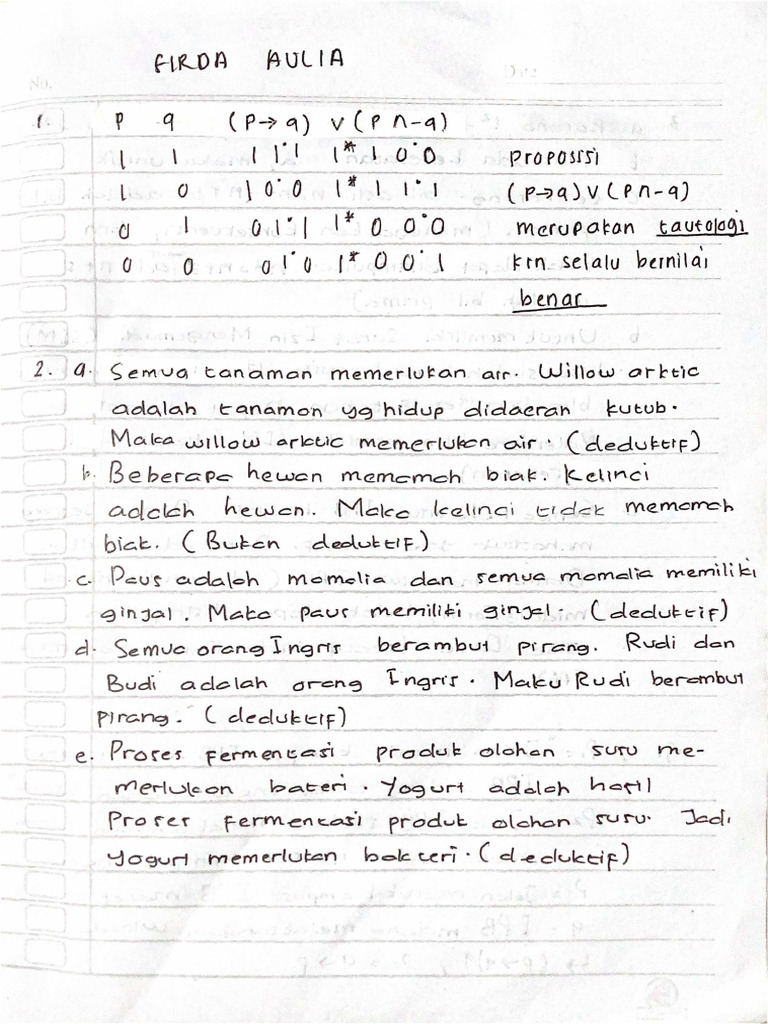 FIRDA AULIA
No.
Date
1. P q (P → q) ∨ (P ∩ -q)
1 1 1 1 1 1* 1 0 0 proposisi
1 0 1 0 0 1* 1 1 1 (P→q) ∨ (P∩-q)
0 1 0 1 1 1* 0 0 0 merupakan tautologi
0 0 0 1 0 1* 0 0 1 krn selalu bernilai
benar
2. a. Semua tanaman memerlukan air. Willow arktic
adalah tanaman yg hidup didaerah kutub.
Maka willow arktic memerlukan air. (deduktif)
b. Beberapa hewan memamah biak. Kelinci
adalah hewan. Maka kelinci tidak memamah
biak. (Bukan deduktif)
c. Paus adalah mamalia dan semua mamalia memiliki
ginjal. Maka paus memiliki ginjal. (deduktif)
d. Semua orang Ingris berambut pirang. Rudi dan
Budi adalah orang Ingris. Maka Rudi berambut
pirang. (deduktif)
e. Proses fermentasi produk olahan susu me-
merlukan bateri. Yogurt adalah hasil
Proses fermentasi produk olahan susu. Jadi
Yogurt memerlukan bakteri. (deduktif)